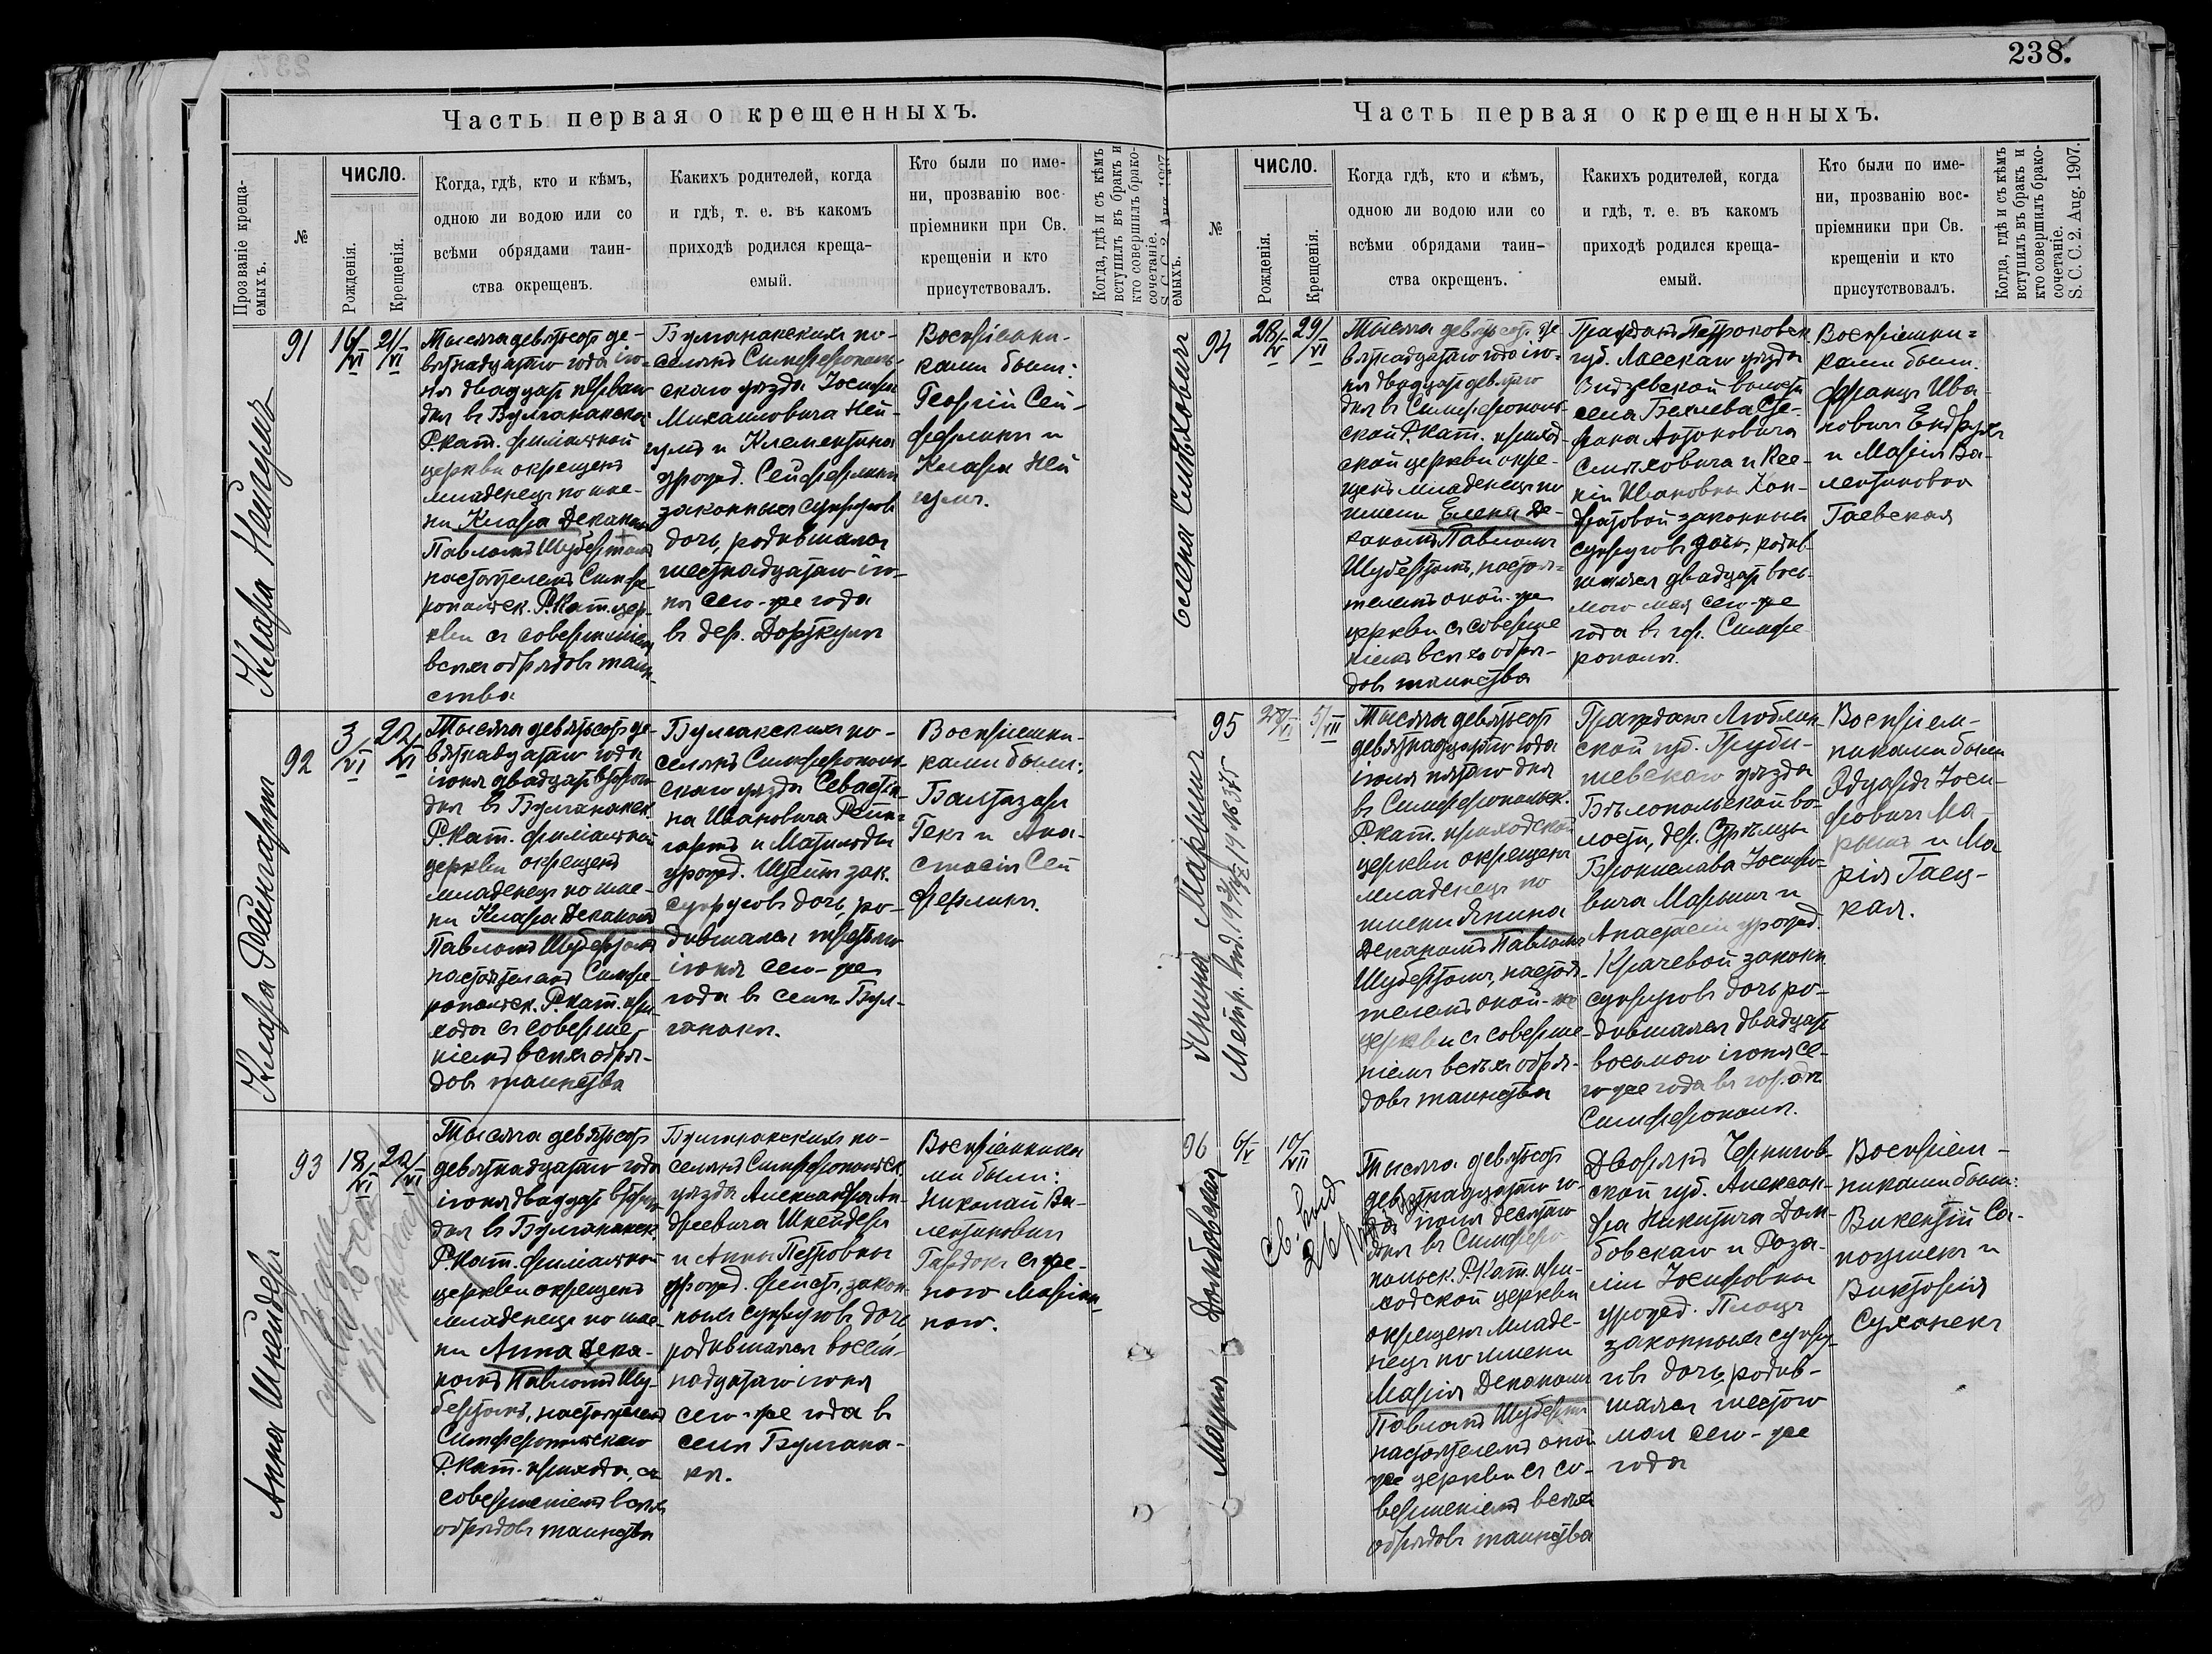 238.
Часть первая о крещенныхъ.
Прозваніе креща-
емыхъ.
№
ЧИСЛО.
Рожденія.
Крещенія.
Когда, гдѣ, кто и кѣмъ,
одною ли водою или со
всѣми обрядами таин-
ства окрещенъ.
Какихъ родителей, когда
и гдѣ, т. е. въ какомъ
приходѣ родился креща-
емый.
Кто были по име-
ни, прозванію вос-
пріемники при Св.
крещеніи и кто
присутствовалъ.
Когда, гдѣ и съ кѣмъ
вступилъ въ бракъ и
кто совершилъ брако-
сочетаніе.
Клара Нейгумъ
91
16/VI
21/VI
Тысяча девятьсот де-
вятнадцатаго года ію-
ня двадцать перваго
дня въ Булганакской
Р.Кат. филіальной
церкви окрещенъ
младенецъ по име-
ни Клара Деканомъ
Павломъ Шубертомъ
настоятелемъ Симфе-
ропольск. Р.Кат. цер-
кви съ совершеніемъ
всѣхъ обрядовъ таин-
ства
Булганакскихъ по-
селянъ Симферополь-
скаго уѣзда Іосифа
Михаиловича Ней-
гумъ и Клементина
урожд. Сейферлинг
законныхъ супруговъ
дочь, родившаяся
шестнадцатаго ію-
ня сего-же года
въ дер.
Воспріемни-
ками были:
Георгій Сей-
ферлингъ и
Клара Ней
гумъ.
Клара Рейнгартъ
92
3/VI
22/VI
Тысяча девятьсот де-
вятнадцатаго года
іюня двадцать второго
дня въ Булганакск.
Р.Кат. филіальной
церкви окрещенъ
младенецъ по име-
ни Клара Деканомъ
Павломъ Шубертомъ
настоятелемъ Симфе-
ропольск. Р.Кат. при-
хода съ соверше-
ніемъ всѣхъ обря-
довъ таинства
Булганакскихъ по-
селянъ Симферополь-
скаго уѣзда Севастья-
на Ивановича Рейн-
гартъ и Матильды
урожд. зак.
супруговъ дочь, ро-
дившаяся третьяго
іюня сего-же
года въ селѣ Бул-
ганакъ.
Воспріемни-
ками были:
Балтазаръ
Гекъ и Ана-
стасія Сей
ферлингъ.
Анна Шнейдеръ
93
18/VI
22/VI
Тысяча девятьсот
девятнадцатаго года
іюня двадцать второго
дня въ Булганакск.
Р.Кат. филіальной
церкви окрещенъ
младенецъ по име-
ни Анна Дека-
номъ Павломъ Шу-
бертомъ, настоятелемъ
Симферопольскаго
Р.Кат. прихода, съ
совершеніемъ всѣхъ
обрядовъ таинства
Булганакскихъ по-
селянъ Симферопольск.
уѣзда Александра Ан-
дреевича Шнейдеръ
и Анны Петровны
урожд. закон-
ныхъ супруговъ дочь,
родившаяся восем-
надцатаго іюня
сего-же года въ
селѣ Булгана-
къ.
Воспріемника
ми были:
Николай Ва-
лентиновичъ
съ же-
ною Маріан-
ною.
Часть первая о крещенныхъ.
емыхъ.
№
ЧИСЛО.
Рожденія.
Крещенія.
Когда гдѣ, кто и кѣмъ,
одною ли водою или со
всѣми обрядами таин-
ства окрещенъ.
Какихъ родителей, когда
и гдѣ, т. е. въ какомъ
приходѣ родился креща-
емый.
Кто были по име-
ни, прозванію вос-
пріемники при Св.
крещеніи и кто
присутствовалъ.
Когда, гдѣ и съ кѣмъ
вступилъ въ бракъ и
кто совершилъ брако-
сочетаніе.
S. C. C. 2. Aug. 1907.
Елена Смѣховичъ
94
28/V
29/VI
Тысяча девятьсот де-
вятнадцатаго года ію-
ня двадцать девятаго
дня въ Симферополь-
ской Р.Кат. приход-
ской церкви окре-
щенъ младенецъ по
имени Елена Де-
каномъ Павломъ
Шубертомъ, настоя-
телемъ оной-же
церкви съ соверше
ніемъ всѣхъ обря-
довъ таинства
Граждан Петроковск
губ. Ласскаго уѣзда
Видзевской волости
села Сте-
фана Антоновича
Смѣховича и Ксе-
ніи Ивановны Кон-
дратовой законныхъ
супруговъ дочь, родив-
шаяся двадцать вось-
мого мая сего-же
года въ гор. Симфе
рополѣ.
Воспріемни-
ками были:
Францъ Ива-
новичъ
и Марія Ва-
лентиновна
Гаевская
Янина Марыняч
95
28/VI
5/VII
Тысяча девятьсот
девятнадцатаго года
іюля пятаго дня
въ Симферопольск.
Р.Кат. приходской
церкви окрещенъ
младенецъ по
имени Янина
Деканомъ Павломъ
Шубертомъ, настоя-
телемъ оной-же
церкви съ соверше-
ніемъ всѣхъ обря-
довъ таинства
Гражданъ Люблин-
ской губ. Груби-
шевскаго уѣзда
Бѣлопольской во-
лости, дер. Стрѣльцы
Бронислава Іосифо-
вича и
Анастасіи урожд.
законн
супруговъ дочь ро-
дившаяся двадцать
восьмого іюня се-
го-же года въ городѣ
Симферополѣ.
Воспріем-
никами были
Эдуардъ Іоси-
фовичъ
и Ма
рія Гаев-
кая.
Марія Домбовская
96
6/V
10/VII
Тысяча девятьсот
девятнадцатаго го-
да іюля десятаго
дня въ Симферо-
польск. Р.Кат. при-
ходской церкви
окрещенъ младе-
нецъ по имени
Марія Деканомъ
Павломъ Шубертом
настоятелемъ оной
же церкви съ со-
вершеніемъ всѣхъ
обрядовъ таинства
Дворянъ Чернигов-
ской губ. Алексан-
дра Никитича Дом-
бовскаго и Роза-
ліи Іосифовны
урожд. Плоцъ
законныхъ супру-
говъ дочь, родив-
шаяся шестого
мая сего-же
года
Воспріем-
никами были:
Викентій Са-
и
Викторія
Суханекъ